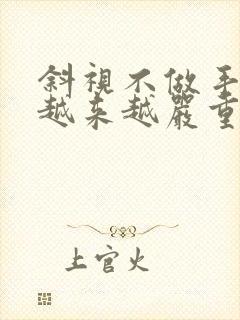 斜視不做手
越来越嚴重
上官火